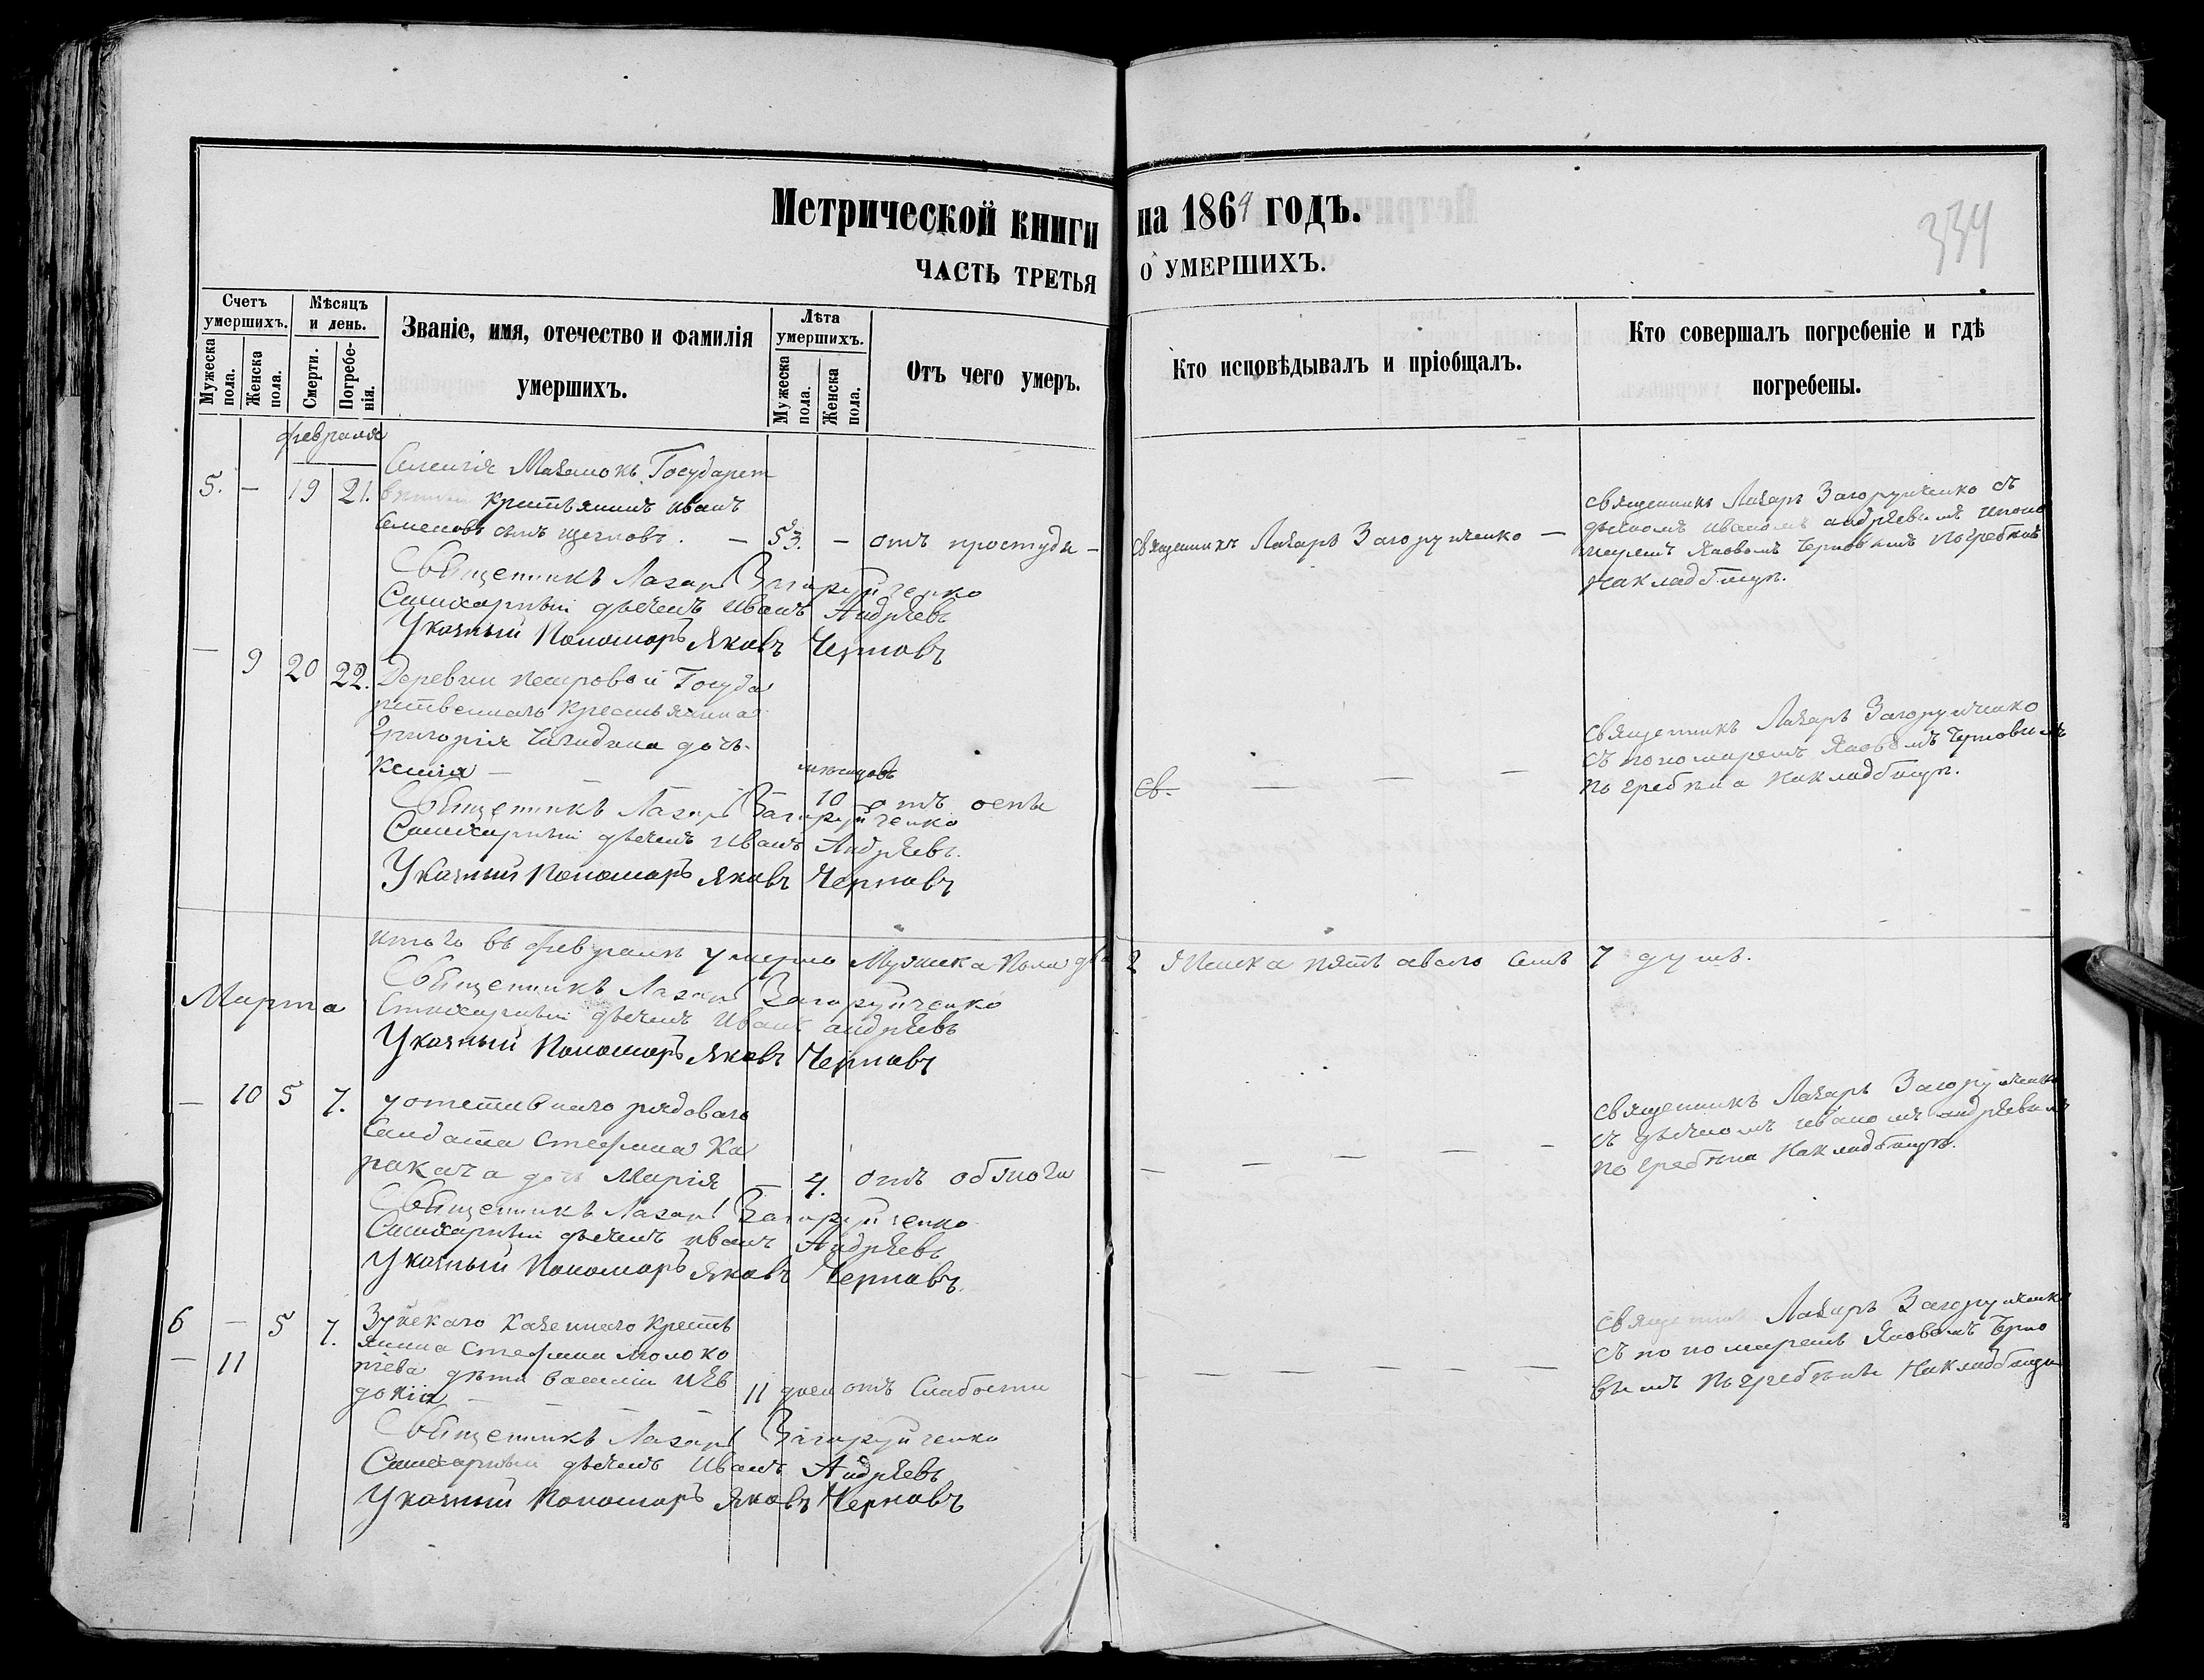 Метрической книги на 1864 годъ.
334
ЧАСТЬ ТРЕТЬЯ О УМЕРШИХЪ.
Счетъ умершихъ.
Мужеска пола.
Женска пола.
Мѣсяцъ и день.
Смерти.
Погребенія.
Званіе, имя, отечество и фамилія умершихъ.
Лѣта умершихъ.
Мужеска пола.
Женска пола.
Отъ чего умеръ.
Кто исповѣдывалъ и пріобщалъ.
Кто совершалъ погребеніе и гдѣ погребены.
февраля
5. — 19 21.
Государст
крестьянинъ иванъ
Семеновъ сынъ щегловъ. — 53. — отъ простуды —
Священникъ Лазарь Загоруйченко —
священникъ Лазарь Загоруйченко съ
дьячкомъ иваномъ андрѣевымъ ипоно
маремъ Яковомъ Черновымъ погребенъ
накладбищѣ.
Священникъ Лазарь Загоруйченко
Стихарный дьячекъ Иванъ Андрѣевъ
Указный Пономарь Яковъ Черновъ
— 9 20 22.
Деревни петровой Госуда
рственнаго крестьянина
Григорія дочь
Ксенія —
мѣсяцовъ
10 отъ оспы
св. — — —
священникъ Лазарь Загоруйченко
съ пономаремъ Яковомъ Черновымъ
погребена накладбищѣ.
Священникъ Лазарь Загоруйченко
Стихарный дьячекъ Иванъ Андрѣевъ.
Указный Пономарь Яковъ Черновъ
итого въ февралѣ умерло Мужеска пола два 2 Женска пять авсего семь 7 душъ.
Священникъ Лазарь Загоруйченко
Стихарный дьячекъ Иванъ андрѣевъ
Указный Пономарь Яковъ Черновъ
Марта
— 10 5 7.
рядоваго
Салдата Стефана Ка
ракача дочь Марія — 4. отъ
— — — — —
священникъ Лазарь Загоруйченко
съ дьячкомъ иваномъ андрѣевымъ
погребена накладбищѣ.
Священникъ Лазарь Загоруйченко
Стихарный дьячекъ иванъ Андрѣевъ
Указный Пономарь Яковъ Черновъ.
6 — 5 7.
— 11
казеннаго крестъ
янина Стефана молоко
ѣева дѣти василій иЕв
докія — — — 11 дней отъ слабости
— — — — —
священникъ Лазарь Загоруйченко
съ пономаремъ Яковомъ Черно
вымъ погребены накладбищѣ
Священникъ Лазарь Загоруйченко
Стихарный дьячекъ Иванъ Андрѣевъ
Указный Пономарь Яковъ Черновъ